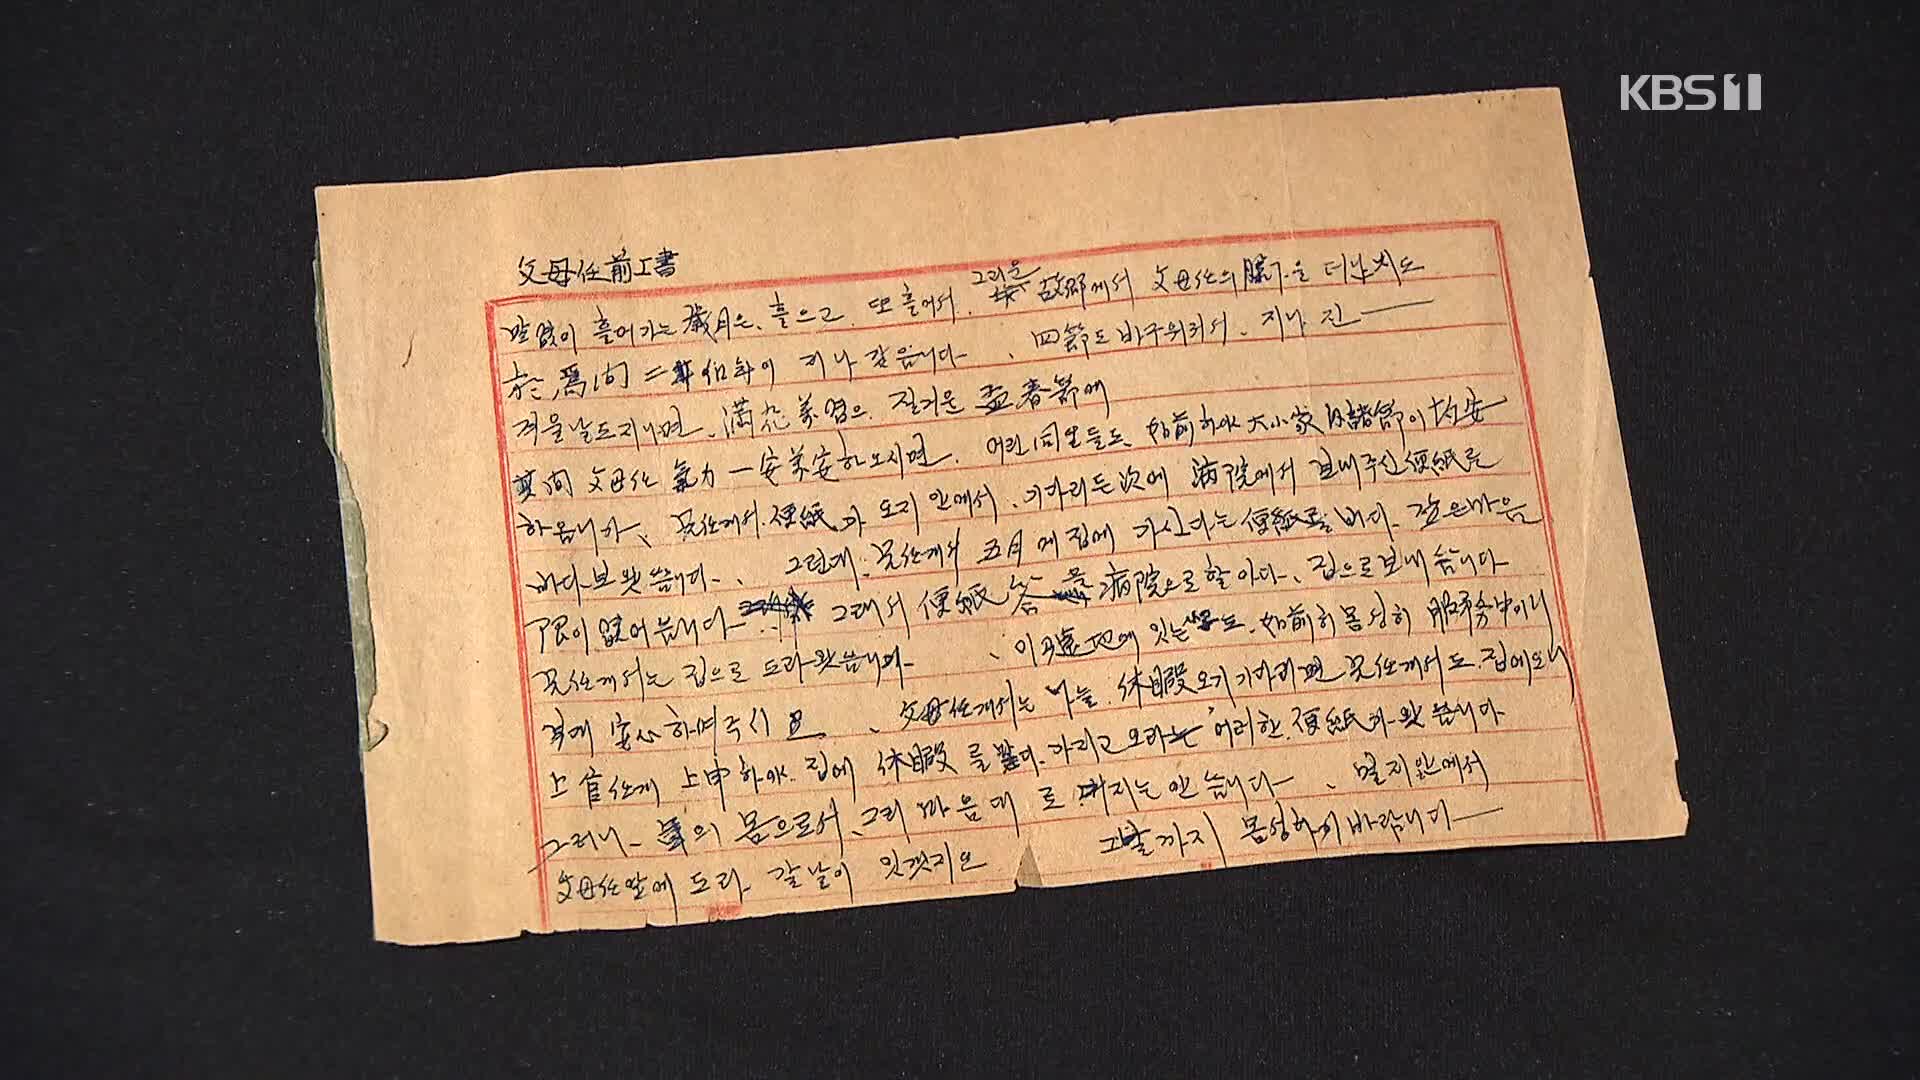 KBS 1
父母任前上書
말없이 흘어가는 歲月은, 흘으고, 또 흘어서, 그리운 故鄕에서 父母任의 를 떠나지도
於焉間 二個年이 지나갔읍니다. 四節도 바구위러서, 지나 진
겨울날도 지나면, 满花 질거운 孟春節에
父母任 氣力 一安萬安하오시면, 어린 同生들도, 如前하며 大小家 內諸節이 均安
하옵니가, 兄任게서 便紙가 오지 안에서, 기다리든 次에 病院에서 보내주신 便紙를
바다보왓씁니다. 그런데, 兄任게서 五月에 집에 가신다는 便紙를 바다, 깊은 마음
限이 없어씁니다. 그래서 便紙 答 病院으로 할아다, 집으로 보내습니다
兄任게서는 집으로 도라왓씁니다. 이 遠地에 잇는 도, 如前히 몸성히 服務中이니
安心하여주시 父母任게서는 休暇 오기 기다리면 兄任게서도 집에오니
上官任게 上申하야, 집에 休暇를 가리고 오라 어러한 便紙가 왓씁니다
그러나, 의 몸으로서, 그리 마음대로 되지는 안습니다. 멀지안에서
父母任앞에 도라 갈 날이 잇겟지요 그날까지 몸성하기 바랍니다